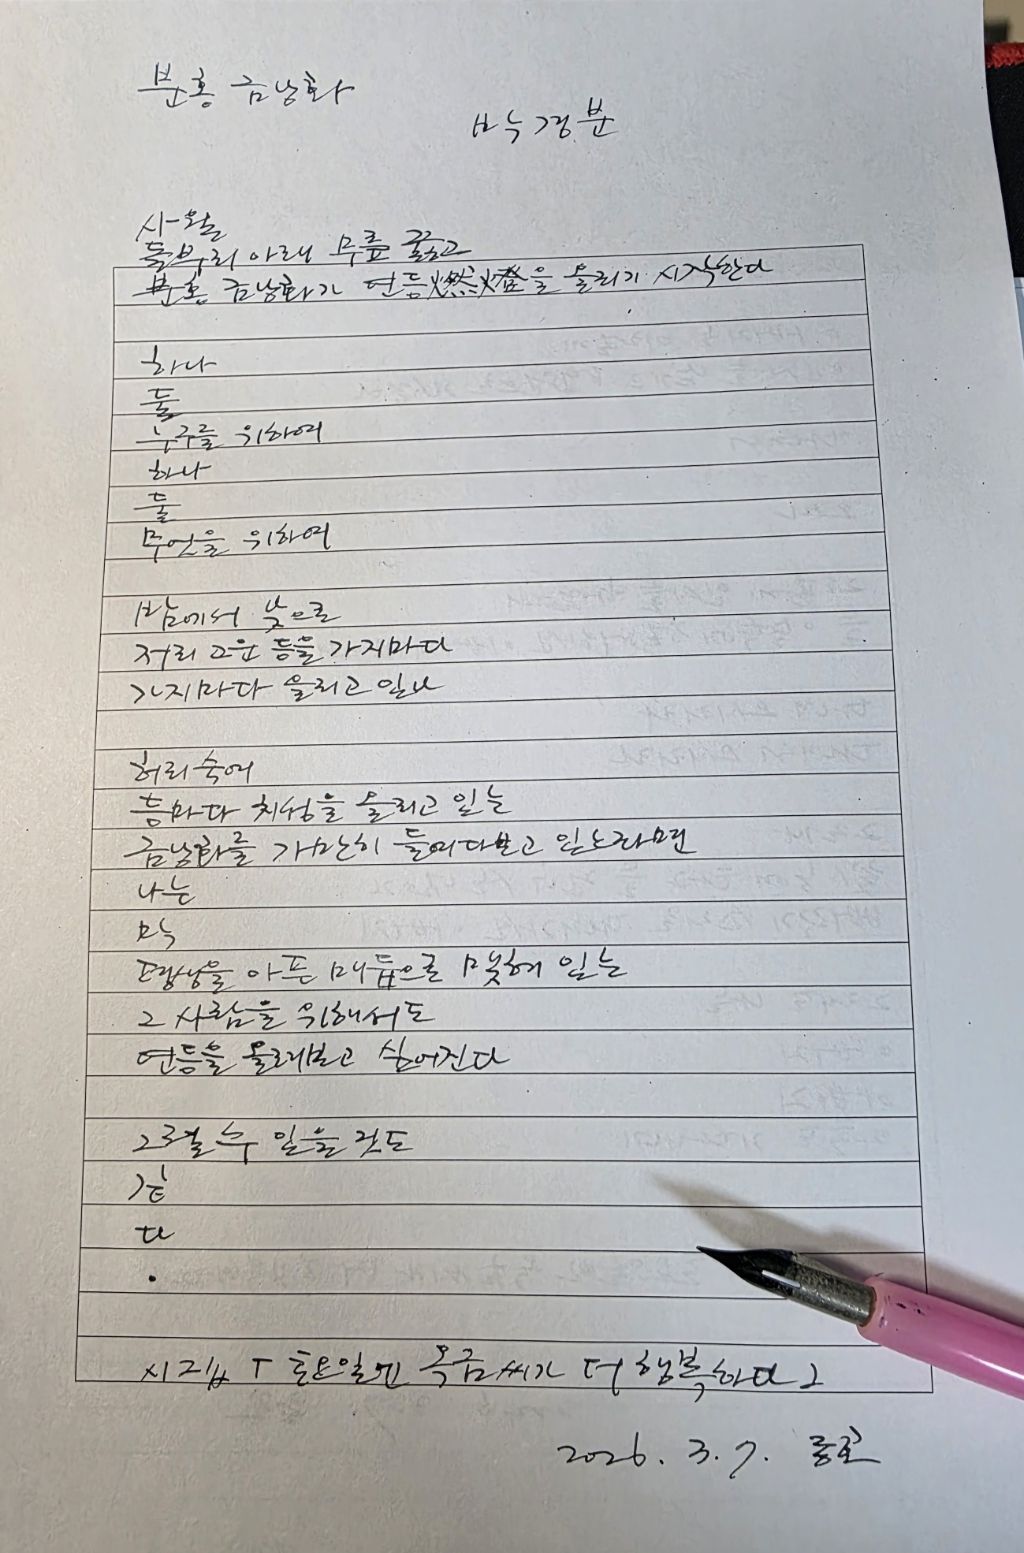 분홍 금낭화
박경분
사월
돌부리 아래 무릎 꿇고
분홍 금낭화가 연등燃燈을 올리기 시작한다
하나
둘
누구를 위하여
하나
둘
무엇을 위하여
밤에서 낮으로
저리 고운 등을 가지마다
가지마다 올리고 있나
허리 숙여
등마다 치성을 올리고 있는
금낭화를 가만히 들여다보고 있노라면
나는
막
평생을 아픈 매듭으로 맺혀 있는
그 사람을 위해서도
연등을 올려보고 싶어진다
그럴 수 있을 것도
같
다
.
시집 「토요일엔 목금씨가 더 행복하다」
2026. 3. 7.